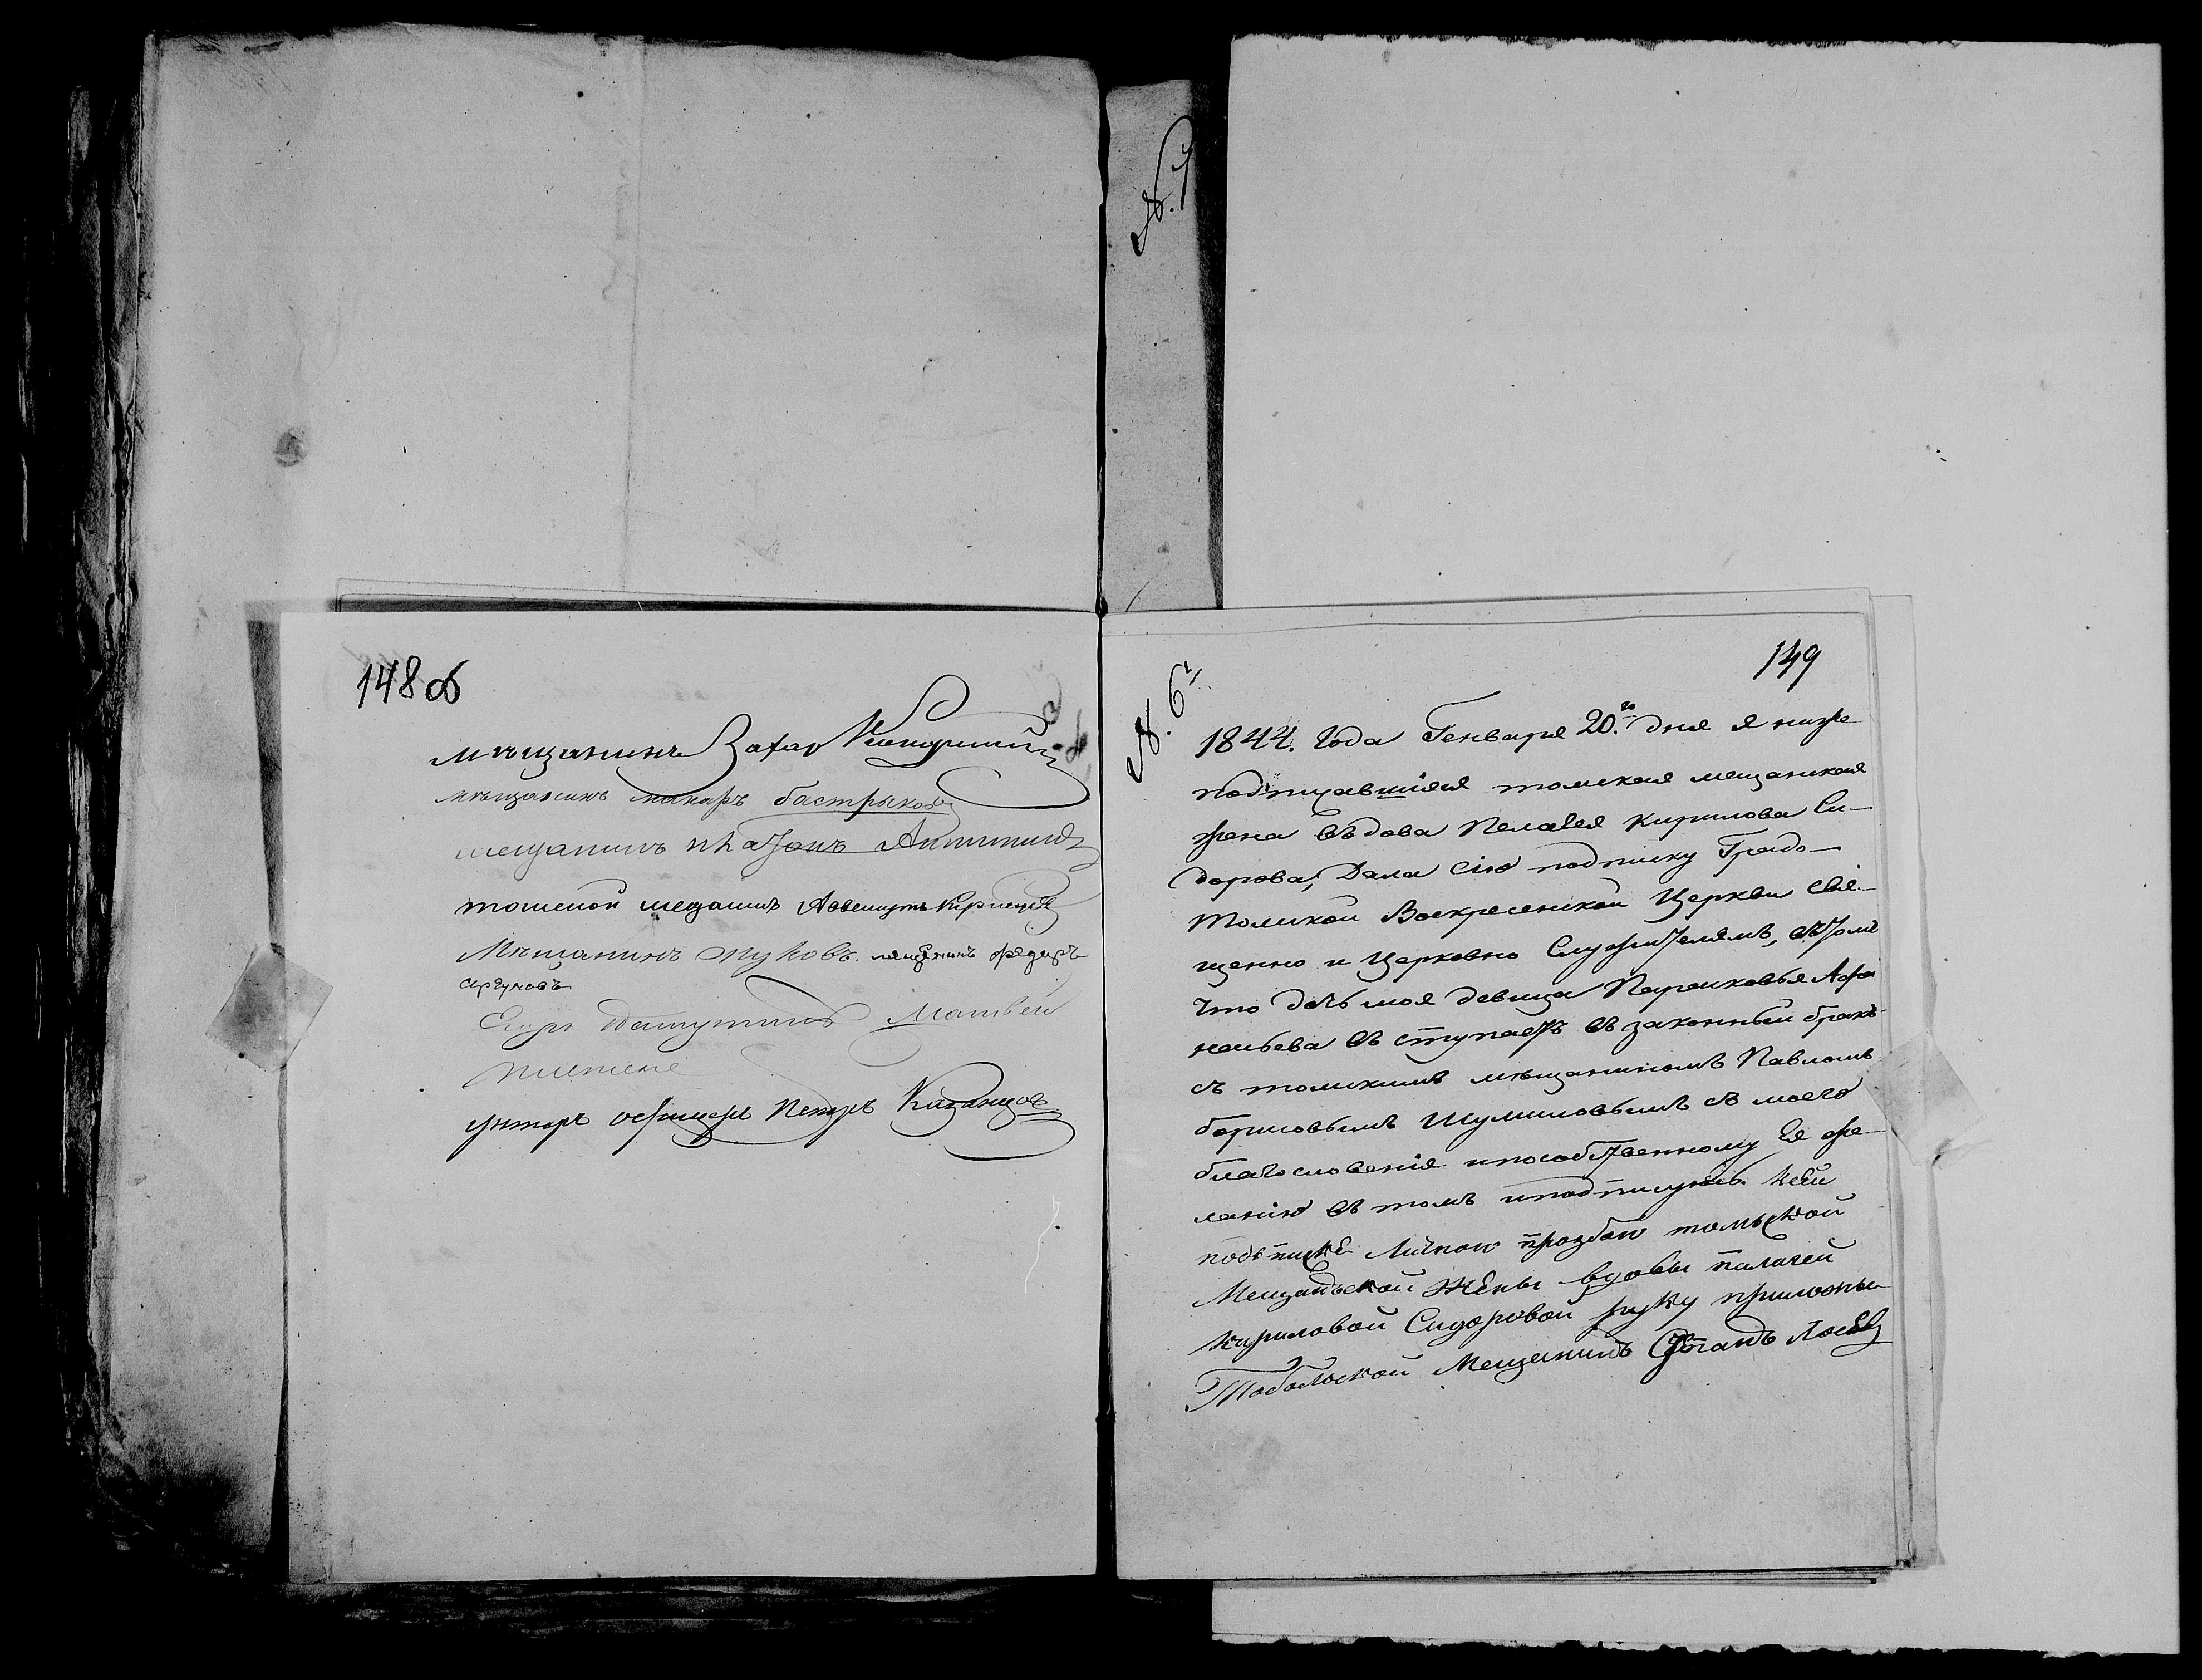 148 об
мѣщанинъ Захар
мѣщанинъ макаръ бастрыковъ
мещанинъ платонъ
томской мещанинъ
Мѣщанинъ Жуковъ. мещенинъ федоръ
сргуновъ
Егоръ Матвей
унтеръ офицеръ Петръ Казанцовъ
№. 7
149
№. 6й
1844. года Генваря 20.го дня я ниже
подписавшаяся томская мещанская
жена въдова Пелагея Кирилова Си-
дорова, Дала сію подписку Градо-
Томской Воскресенской Церкви свя-
щенно и Церковно Служителямъ, въ томъ
Что дочь моя девица Парасковья Афа
насьева въ ступаетъ въ законный бракъ
съ томскимъ мѣщаниномъ Павломъ
борисовымъ Шумиловымъ съ моего
благословенія ипособственному Ея же-
ланію въ томъ иподписуюсь. Ксей
подъписке Личною прозбою томской
Мещанской жены вдовы палагеи
Кириловой Сидоровой руку приложилъ
Тобольской Мещенинъ Степанъ Лосевъ